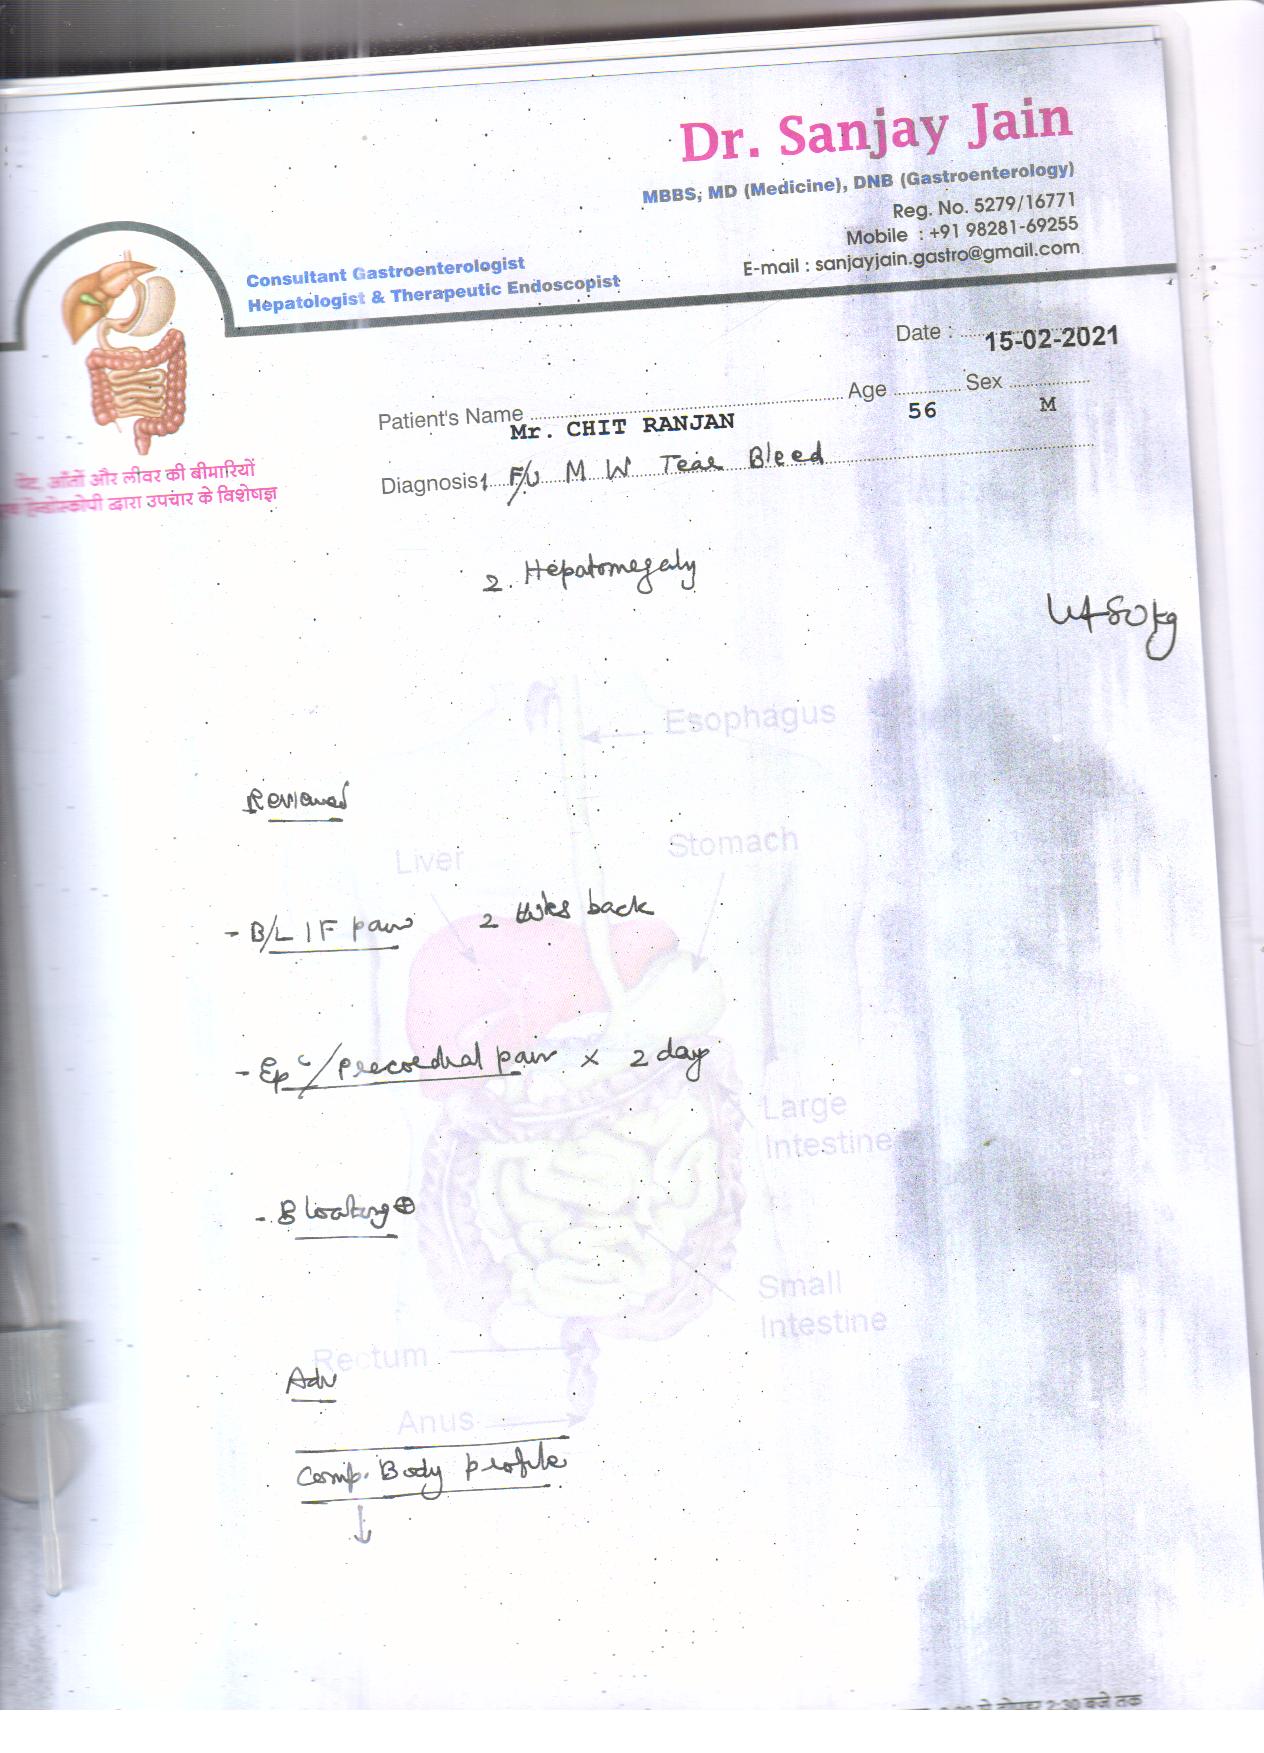 Dr. Sanjay Jain
MBBS, MD (Medicine), DNB (Gastroenterology)
Reg. No. 5279/16771
Mobile : +91 98281-69255
E-mail : sanjayjain.gastro@gmail.com
Consultant Gastroenterologist
Hepatologist & Therapeutic Endoscopist
पेट, आँतों और लीवर की बीमारियों
एवं ऐन्डोस्कोपी द्वारा उपचार के विशेषज्ञ
Date : 15-02-2021
Patient's Name Mr. CHIT RANJAN Age 56 Sex M
Diagnosis 1. F/U M W Tear Bleed
2. Hepatomegaly
Wt 80 kg
Esophagus
Reviewed
Stomach
Liver
- B/L IF pain 2 wks back
- Epc/precordial pain x 2 day
Large
Intestine
- Bloating ⊕
Small
Intestine
Rectum
Adv
Anus
Comp. Body profile
↓
2:30 बजे तक